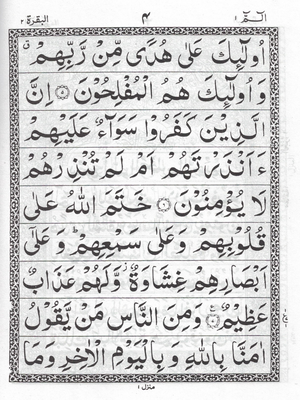 الٓمّٓ ١ ٤ البقرة ٢
اُولٰٓئِكَ عَلٰى هُدًى مِّنْ رَّبِّهِمْ ۗ
وَ اُولٰٓئِكَ هُمُ الْمُفْلِحُوْنَ ۝٥ اِنَّ
الَّذِيْنَ كَفَرُوْا سَوَآءٌ عَلَيْهِمْ
ءَاَنْذَرْتَهُمْ اَمْ لَمْ تُنْذِرْهُمْ
لَا يُؤْمِنُوْنَ ۝٦ خَتَمَ اللّٰهُ عَلٰى
قُلُوْبِهِمْ وَعَلٰى سَمْعِهِمْ ؕ وَ عَلٰٓى
اَبْصَارِهِمْ غِشَاوَةٌ ۫ وَّلَهُمْ عَذَابٌ
عَظِيْمٌ ۝٧ وَمِنَ النَّاسِ مَنْ يَّقُوْلُ
اٰمَنَّا بِاللّٰهِ وَ بِالْيَوْمِ الْاٰخِرِ وَمَا
منزل ١